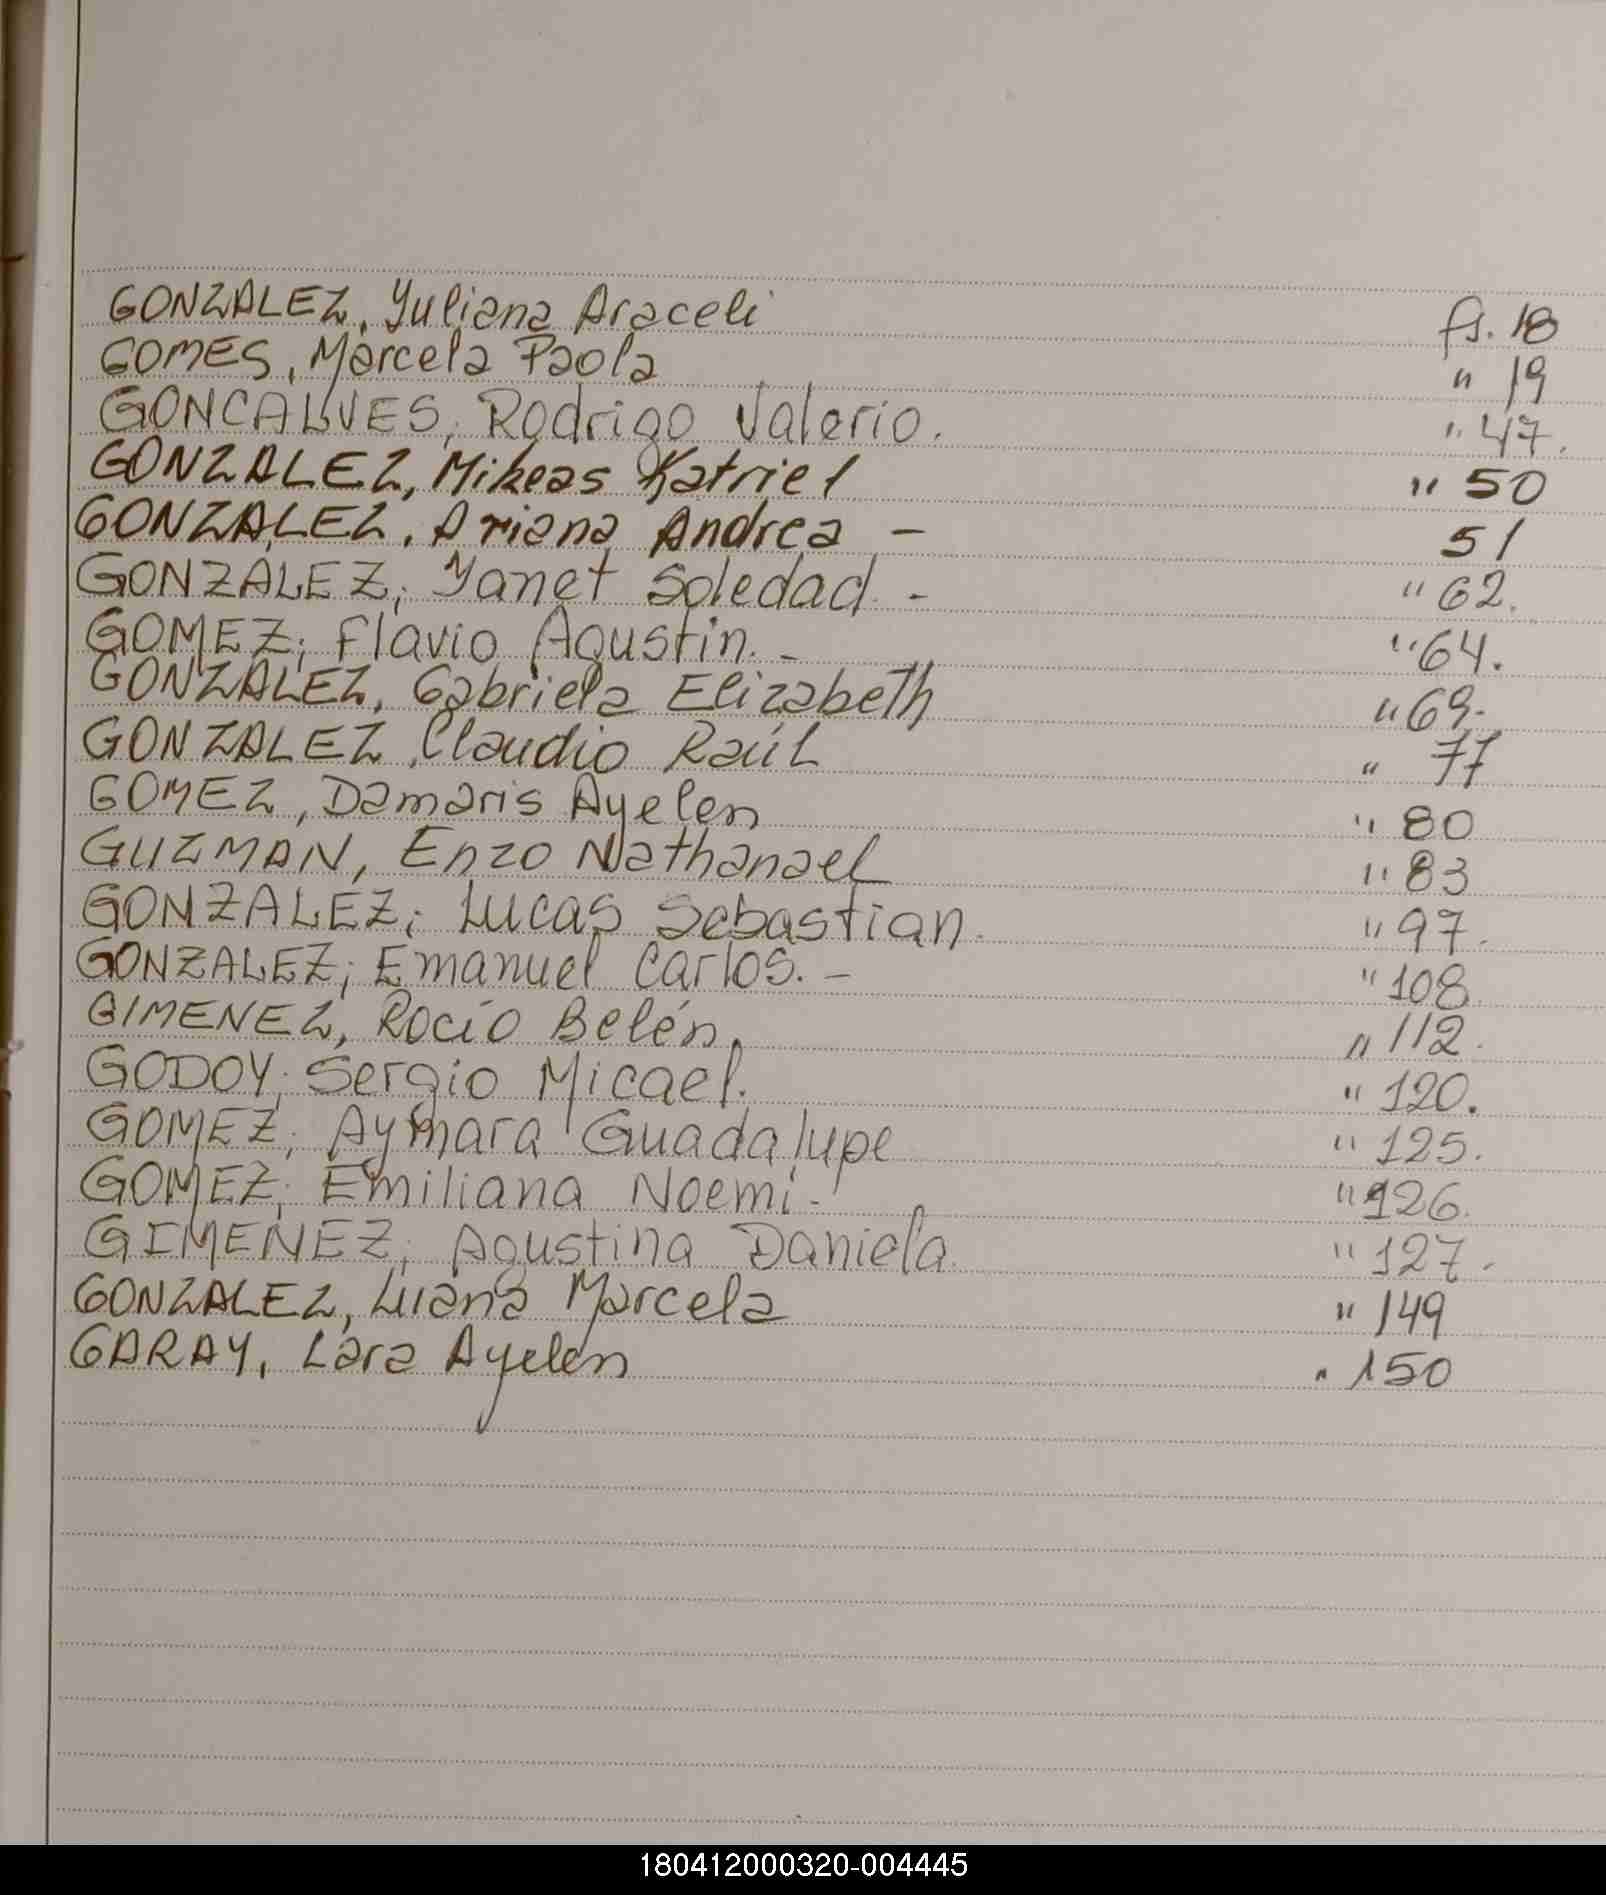 GONZALEZ, Yuliana Araceli fs. 18
GOMES, Marcela Paola " 19
GONCALVES, Rodrigo Valerio. " 47.
GONZALEZ, Mikeas Katriel " 50
GONZALEZ, Ariana Andrea - 51
GONZALEZ; Yanet Soledad. - " 62.
GOMEZ; Flavio Agustin. - " 64.
GONZALEZ, Gabriela Elizabeth " 69.
GONZALEZ, Claudio Raúl " 77
GOMEZ, Damaris Ayelen " 80
GUZMAN, Enzo Nathanael " 83
GONZALEZ; Lucas Sebastian. " 97.
GONZALEZ; Emanuel Carlos. - " 108.
GIMENEZ, Rocío Belén. " 112.
GODOY; Sergio Micael. " 120.
GOMEZ; Aymara Guadalupe " 125.
GOMEZ; Emiliana Noemi. " 126.
GIMENEZ; Agustina Daniela. " 127.
GONZALEZ, Luana Marcela " 149
GARAY, Lara Ayelen " 150
180412000320-004445